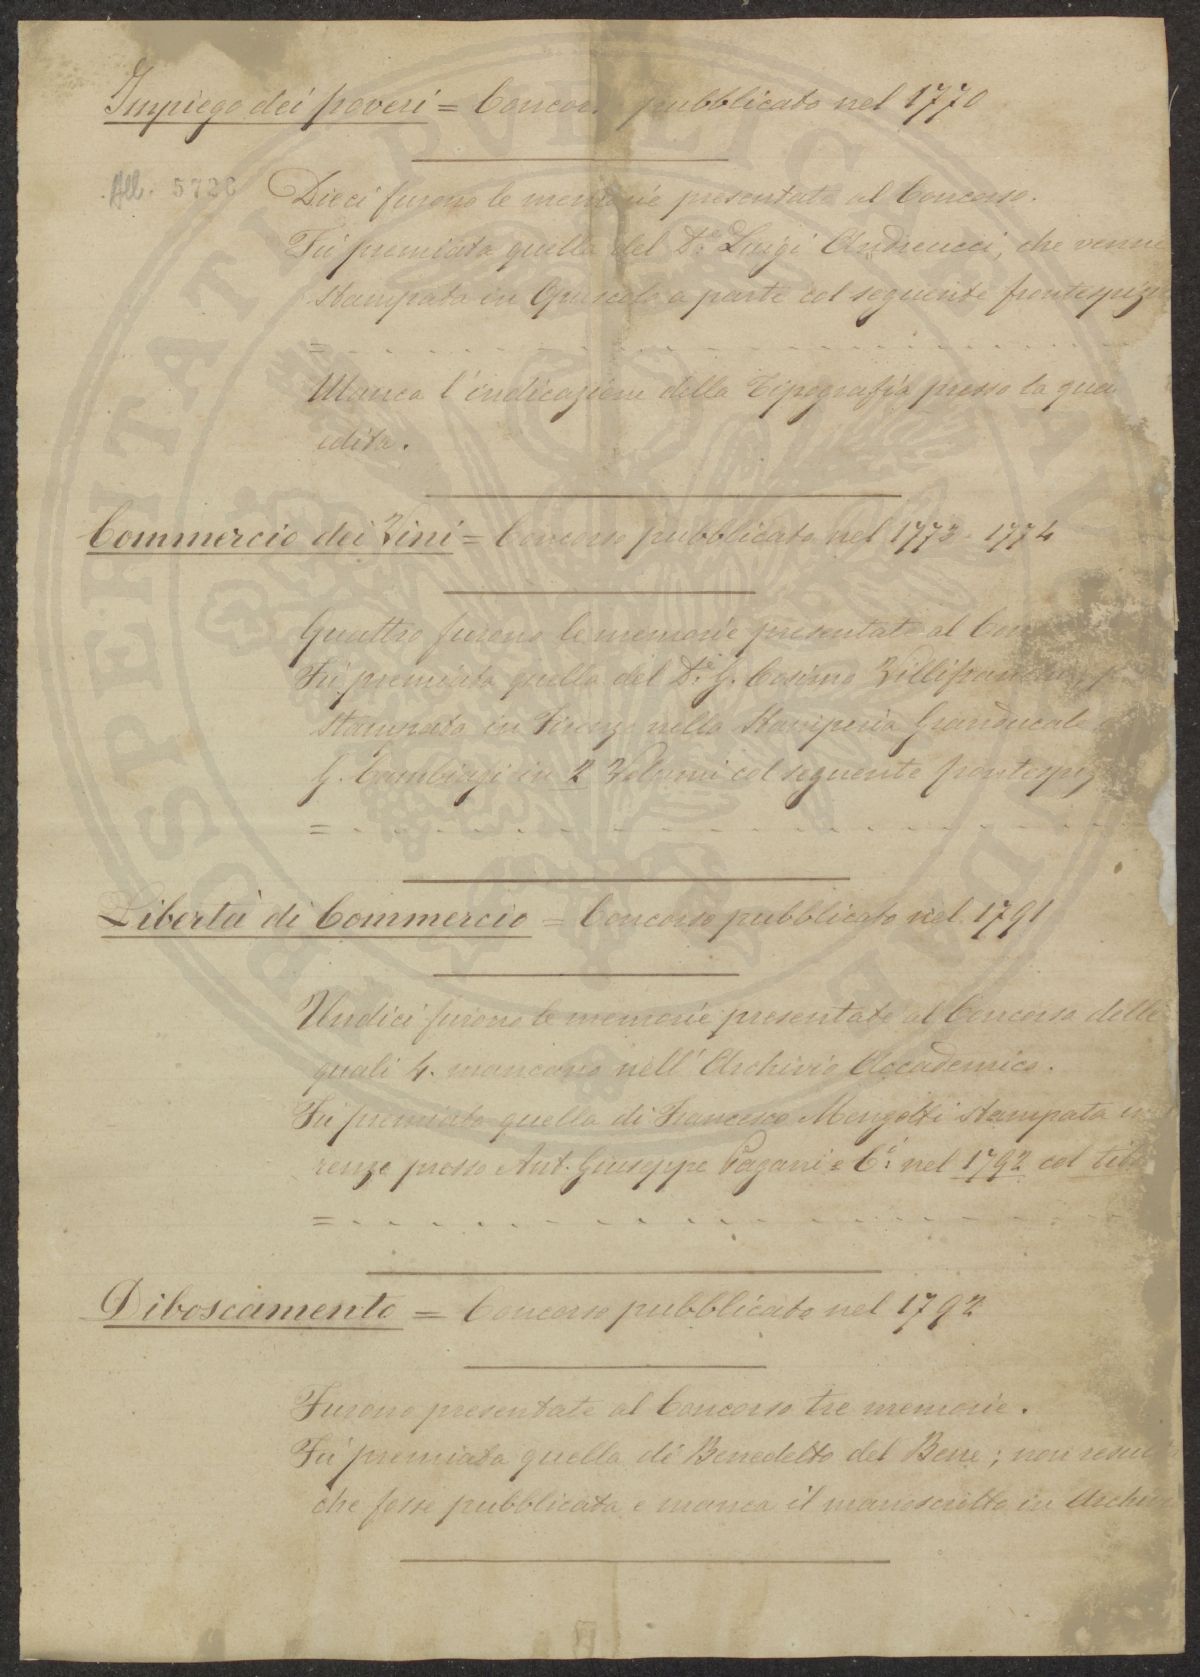 Impiego dei poveri = Concorso pubblicato nel 1770
All. 5726
Dieci furono le memorie presentate al Concorso.
Fù premiata quella del D.e Luigi Andreucci, che venne
stampata in Opuscolo a parte col seguente frontespizio
=
Manca l'indicazione della Tipografia presso la qua
edita.
Commercio dei Vini = Concorso pubblicato nel 1773-1774
Quattro furono le memorie presentate al Con
Fù premiata quella del D.e G. Cosimo Villifranchi
stampata in Firenze nella Stamperia Granducale
G. Cambiagi in 2 Volumi col seguente frontespiz
=
Libertà di Commercio = Concorso pubblicato nel 1791
Undici furono le memorie presentate al Concorso delle
quali 4. mancano nell'Archivio Accademico.
Fù premiata quella di Francesco Mengotti stampata in
renze presso Ant. Giuseppe Pagani e C.i nel 1792 col tito
=
Diboscamento = Concorso pubblicato nel 1792
Furono presentate al Concorso tre memorie.
Fù premiata quella di Benedetto del Bene; non resul
che fosse pubblicata e manca il manoscritto in Archivi
PROSPERITATI PVBLICAE AVGENDAE